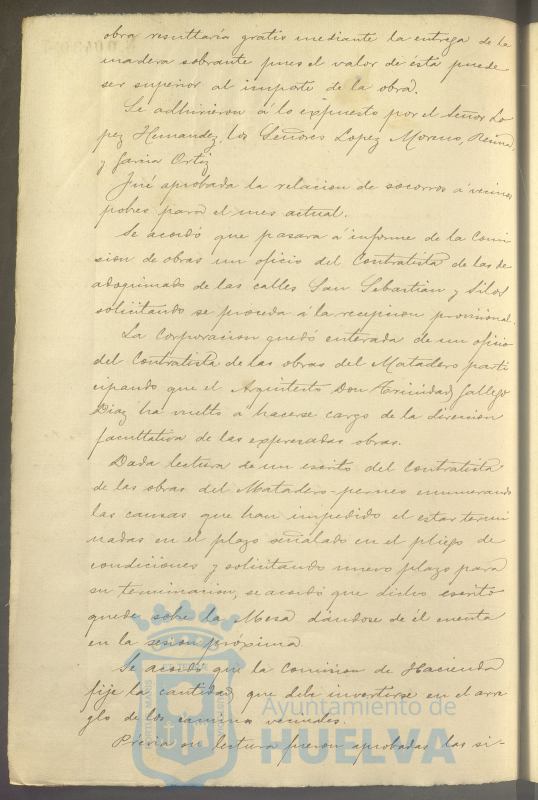 obra resultaria gratis mediante la entrega de la
madera sobrante pues el valor de ésta puede
ser superior al importe de la obra.
Se adhirieron á lo expuesto por el Señor Lo
pez Hernandez, los Señores Lopez Moreno, Reina
y Garcia Ortiz
Fué aprobada la relacion de socorros á vecinos
pobres para el mes actual.
Se acordó que pasara á informe de la Comi
sion de obras un oficio del Contratista de las de
adoquinado de las calles San Sebastian y Silos
solicitando se proceda á la recepcion provisional.
La Corporacion quedó enterada de un oficio
del Contratista de las obras del Matadero parti
cipando que el Arquitecto Don Trinidad Gallego
Diaz ha vuelto á hacerse cargo de la direccion
facultativa de las expresadas obras.
Dada lectura de un escrito del Contratista
de las obras del Matadero enumerando
las causas que han impedido el estar termi
nadas en el plazo señalado en el pliego de
condiciones y solicitando nuevo plazo para
su terminacion, se acordó que dicho escrito
quede sobre la Mesa dándose de él cuenta
en la sesion próxima.
Se acordó que la Comision de Hacienda
fije la cantidad que debe invertirse en el arre
glo de los caminos vecinales.
Prévia su lectura fueron aprobadas las si-
Ayuntamiento de
HUELVA